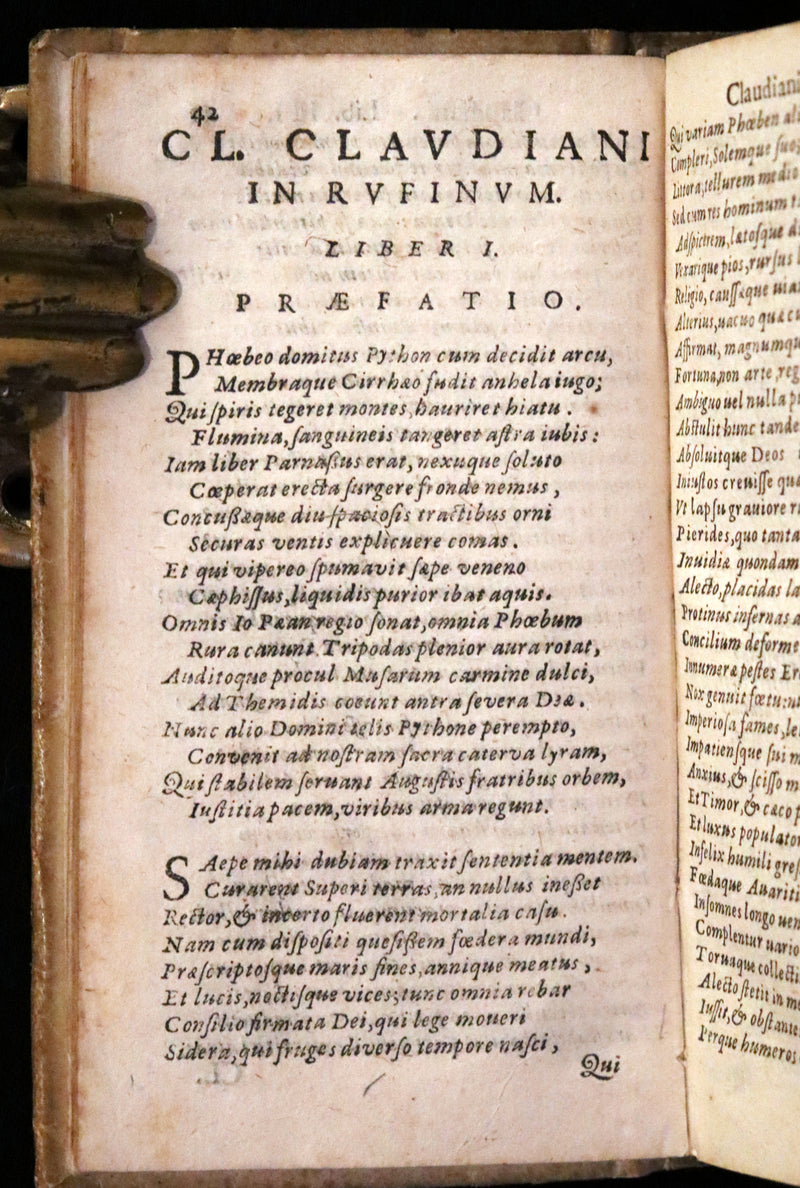 42
CL. CLAVDIANI
IN RVFINVM.
LIBER I.
PRÆFATIO.
PHœbeo domitus Python cum decidit arcu,
Membraque Cirrhæo fudit anhela iugo;
Qui ſpiris tegeret montes, hauriret hiatu.
Flumina, ſanguineis tangeret aſtra iubis:
Iam liber Parnaſſus erat, nexuque ſoluto
Cœperat erecta ſurgere fronde nemus,
Concuſſæque diu ſpacioſis tractibus orni
Securas ventis explicuere comas.
Et qui vipereo ſpumavit ſæpe veneno
Cæphiſſus, liquidis purior ibat aquis.
Omnis Io Pæan regio ſonat, omnia Phœbum
Rura canunt. Tripodas plenior aura rotat,
Auditoque procul Muſarum carmine dulci,
Ad Themidis coeunt antra ſevera Deæ.
Nunc alio Domini telis Pythone perempto,
Convenit ad noſtram ſacra caterva lyram,
Qui ſtabilem ſeruant Auguſtis fratribus orbem,
Iuſtitia pacem, viribus arma regunt.
SAepe mihi dubiam traxit ſententia mentem.
Curarent Superi terras, an nullus ineſſet
Rector, & incerto fluerent mortalia caſu.
Nam cum diſpoſiti queſiſſem fœdera mundi,
Præſcriptoſque maris fines, annique meatus,
Et lucis, noctiſque vices; tunc omnia rebar
Conſilio firmata Dei, qui lege moueri
Sidera, qui fruges diverſo tempore naſci,
Qui
Claudiani
Qui variam Phœben
Compleri, Solemque
Littora; tellurem medio
Sed cum res hominum
Adſpicerem, lætoſque
Vexarique pios, rurſus
Religio, cauſſæque
Alterius, uacuo quæ
Affirmat, magnumqu
Fortuna, non arte, reg
Ambiguo uel nulla
Abſtulit hunc tande
Abſoluitque Deos
Iniuſtos creuiſſe
Vt lapſu grauiore
Pierides, quo tanta
Inuidiæ quondam
Alecto, placidas la
Protinus infernas
Concilium deforme
Innumeræ peſtes
Nox genuit fœtu:
Imperioſa fames,
Impatienſque ſui
Anxius, & ſciſſo
Et Timor, & cæco
Et luxus populator
Infelix humili
Fœdaque Auariti
Inſomnes longo
Complentur uario
Toruaque collecti
Alecto ſtetit in
Iuſſit, & obſtante
Perque humeros